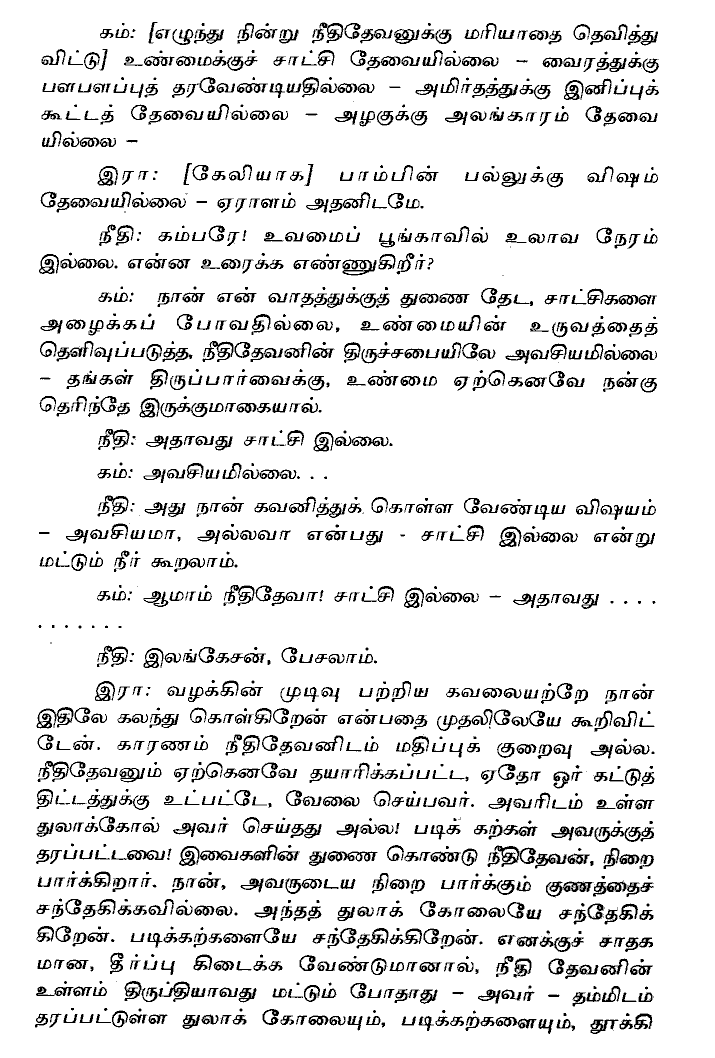 கம்: [எழுந்து நின்று நீதிதேவனுக்கு மரியாதை தெவித்து
விட்டு] உண்மைக்குச் சாட்சி தேவையில்லை – வைரத்துக்கு
பளபளப்புத் தரவேண்டியதில்லை – அமிர்தத்துக்கு இனிப்புக்
கூட்டத் தேவையில்லை – அழகுக்கு அலங்காரம் தேவை
யில்லை –
இரா: [கேலியாக] பாம்பின் பல்லுக்கு விஷம்
தேவையில்லை – ஏராளம் அதனிடமே.
நீதி: கம்பரே! உவமைப் பூங்காவில் உலாவ நேரம்
இல்லை. என்ன உரைக்க எண்ணுகிறீர்?
கம்: நான் என் வாதத்துக்குத் துணை தேட, சாட்சிகளை
அழைக்கப் போவதில்லை, உண்மையின் உருவத்தைத்
தெளிவுப்படுத்த, நீதிதேவனின் திருச்சபையிலே அவசியமில்லை
– தங்கள் திருப்பார்வைக்கு, உண்மை ஏற்கெனவே நன்கு
தெரிந்தே இருக்குமாகையால்.
நீதி: அதாவது சாட்சி இல்லை.
கம்: அவசியமில்லை. . .
நீதி: அது நான் கவனித்துக் கொள்ள வேண்டிய விஷயம்
– அவசியமா, அல்லவா என்பது - சாட்சி இல்லை என்று
மட்டும் நீர் கூறலாம்.
கம்: ஆமாம் நீதிதேவா! சாட்சி இல்லை – அதாவது . . . .
. . . . . . .
நீதி: இலங்கேசன், பேசலாம்.
இரா: வழக்கின் முடிவு பற்றிய கவலையற்றே நான்
இதிலே கலந்து கொள்கிறேன் என்பதை முதலிலேயே கூறிவிட்
டேன். காரணம் நீதிதேவனிடம் மதிப்புக் குறைவு அல்ல.
நீதிதேவனும் ஏற்கெனவே தயாரிக்கப்பட்ட, ஏதோ ஓர் கட்டுத்
திட்டத்துக்கு உட்பட்டே, வேலை செய்பவர். அவரிடம் உள்ள
துலாக்கோல் அவர் செய்தது அல்ல! படிக் கற்கள் அவருக்குத்
தரப்பட்டவை! இவைகளின் துணை கொண்டு நீதிதேவன், நிறை
பார்க்கிறார். நான், அவருடைய நிறை பார்க்கும் குணத்தைச்
சந்தேகிக்கவில்லை. அந்தத் துலாக் கோலையே சந்தேகிக்
கிறேன். படிக்கற்களையே சந்தேகிக்கிறேன். எனக்குச் சாதக
மான, தீர்ப்பு கிடைக்க வேண்டுமானால், நீதி தேவனின்
உள்ளம் திருப்தியாவது மட்டும் போதாது – அவர் – தம்மிடம்
தரப்பட்டுள்ள துலாக் கோலையும், படிக்கற்களையும், தூக்கி